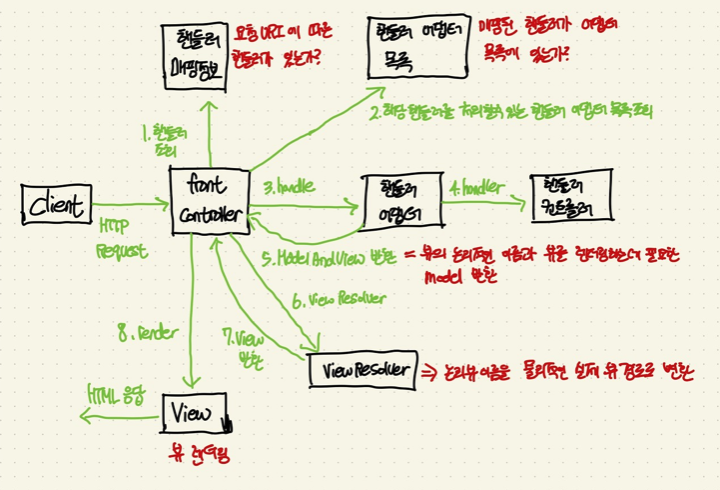 핸들러
매핑정보
요청 URI에 따른
핸들러가 있는가?
핸들러 어댑터
목록
매핑된 핸들러가 어댑터
목록에 있는가?
1. 핸들러
조회
2. 해당 핸들러를 처리할 수 있는 핸들러 어댑터 목록 조회
Client
HTTP
Request
front
Controller
3. handle
핸들러
어댑터
4. handler
핸들러
컨트롤러
5. ModelAndView 반환 = 뷰의 논리적인 이름과 뷰를 렌더링하는데 필요한
Model 반환
6. ViewResolver
7. View
반환
8. render
ViewResolver ⇒ 논리뷰이름을 물리적인 실제 뷰 경로로 변환
HTML 응답
View
뷰 렌더링